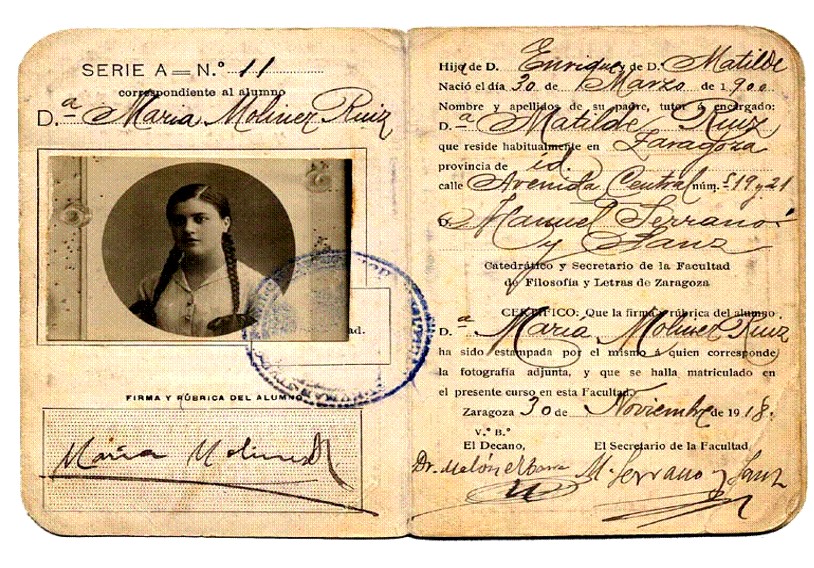 SERIE A — N.º 11
correspondiente al alumno
D.ª Maria Moliner Ruiz
ad.
FIRMA Y RÚBRICA DEL ALUMNO
María Moliner R
Hija de D. Enrique, de D.ª Matilde
Nació el día 30 de Marzo de 1900
Nombre y apellidos de su padre, tutor ó encargado:
D.ª Matilde Ruiz
que reside habitualmente en Zaragoza
provincia de id.
calle Avenida Central núm. 19 y 21
D. Manuel Serrano
y Sanz
Catedrático y Secretario de la Facultad
de Filosofía y Letras de Zaragoza
CERTIFICO: Que la firma y rúbrica del alumno
D.ª María Moliner Ruiz
ha sido estampada por el mismo á quien corresponde
la fotografía adjunta, y que se halla matriculado en
el presente curso en esta Facultad.
Zaragoza 30 de Noviembre de 1918.
V.º B.º
El Decano,
El Secretario de la Facultad,
Dr.
M. Serrano y Sanz